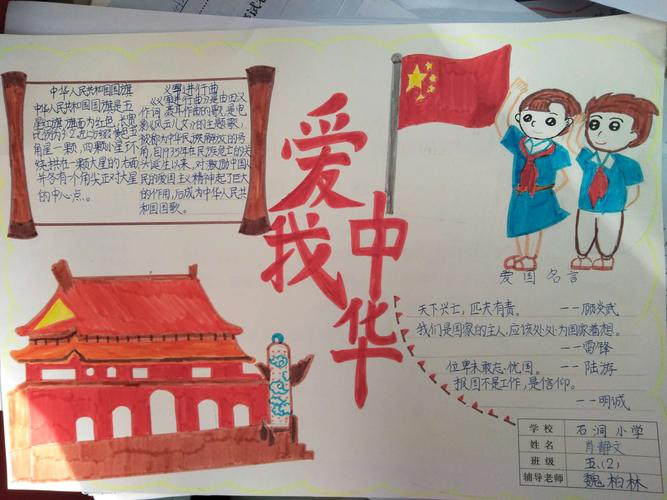 中华人民共和国国旗
中华人民共和国国旗是五
星红旗,旗面为红色,长宽
比例为3:2。左上方缀黄色五
角星一颗,四颗小星环
绕拱在一颗大星的右面,
并各有个角尖正对大星
的中心点。
义勇进行曲
《义勇进行曲》是由田汉
作词,聂耳作曲的歌,是电
影《风云儿女》的主题歌,
被称为中华民族解放的号
角,自1935年在民族危亡的关
头诞生以来,对激励中国人
民的爱国主义精神起了巨大
的作用,后成为中华人民共
和国国歌。
爱我
中华
爱国名言
天下兴亡,匹夫有责。 ——顾炎武
我们是国家的主人,应该处处为国家着想。
——雷锋
位卑未敢忘忧国。 ——陆游
报国不是工作,是信仰。
——明诚
学校 石洞小学
姓名 肖静文
班级 五(2)
辅导老师 魏柏林